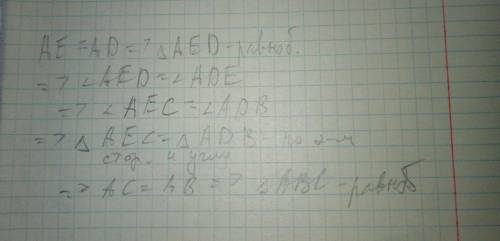 AE = AD => △ AED - равноб.
=> ∠AED = ∠ADE
=> ∠AEC = ∠ADB
=> △ AEC = △ ADB по 2-м
стор. и углу
=> AC = AB => △ABC - равноб